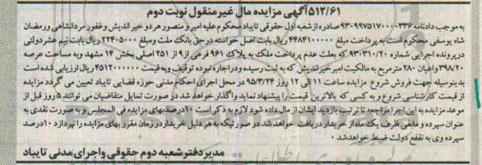 ۵۱۲/۶۱آگهی مزایده مال غیر منقول نوبت دوم
به موجب دادنامه ۹۳۰۹۹۷۵۱۷۰۰۰۳۳۶ صادره از شعبه اول حقوقی تایباد محکوم علیه امیر و منصور هر دو خیر اندیش و غفور سر دانشاهی و رمضان
شاه یوسفی محکوم است به پرداخت مبلغ ۲۴۸۴۱۰۰۰۰ ریال بابت اصل خواسته در حق بانک ملت و مبلغ ۲۲۴۰۵۰۰۰ ریال بابت نیم عشر دولتی
درپرونده اجرایی شماره ۹۳۰۳۱۰۲۰ که بعلت عدم پرداخت ملک به پلاک ۹۶۱ فرعی از ۲۵۱ اصلی بخش ۱۴ مشهد وبه مساحت عرصه
۳۹۸/۲۰ واعیان ۲۸۰ مترم به مالکیت امیر خیراندیش که به ثبت رسیده ودراجاره نبوده توقیف وبه قیمت ۴۵۱۲۰۰۰۰۰۰ ریال ارزیابی شده است
بدینوسیله جهت فروش شروع مزایده ساعت ۱۱ الی ۱۲ روز ۹۵/۳/۲۴ در محل اجرای احکام مدنی حوزه قضایی تایباد تعیین می گردد مزایده
ازقیمت کارشناسی شروع و به کسی که بالاترین قیمت را پیشنهاد نماید واگذار خواهد شد در صورت تمایل متقاضیان می توانند ۵ روز قبل از
موعد مزایده به این اجرا مراجعه تا ترتیب بازدید ایشان از مال داده شود لازم به ذکر است ۱۰ درصد بهای مزایده فی المجلس و به صورت نقدی به
عنوان سپرده و مابقی ظرف یک ماه از خریدار دریافت خواهد شد. در صورتیکه به هر دلیل خریدار در زمان مقرر بهای مزایده را نپردازد ۱۰ درصد
سپرده وی به نفع دولت ضبط خواهد شد
مدیر دفتر شعبه دوم حقوقی واجرای مدنی تایباد